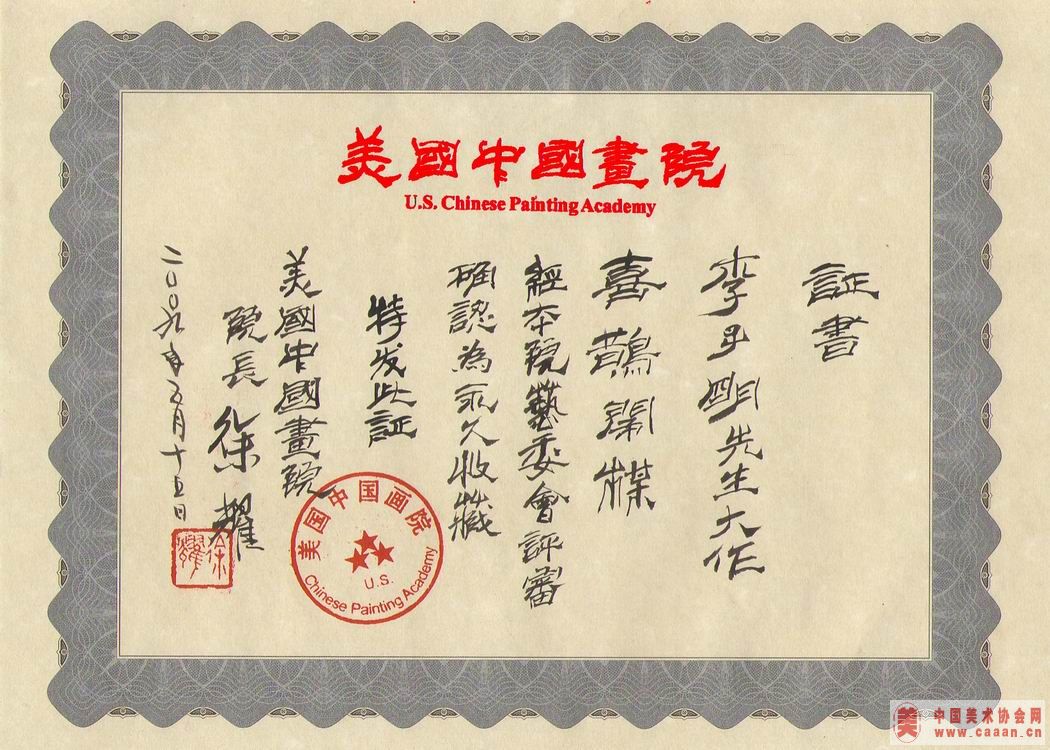 美國中國畫院
U.S. Chinese Painting Academy
証書
李子明先生大作
喜鵲鬧楳
經本院藝委會評審
確認為永久收藏
特发此証
美國中國畫院
院長 徐耀
二〇〇九年五月十五日
徐耀
美国中国画院
U.S.
Chinese Painting Academy
美 中国美术协会网
www.caaan.cn